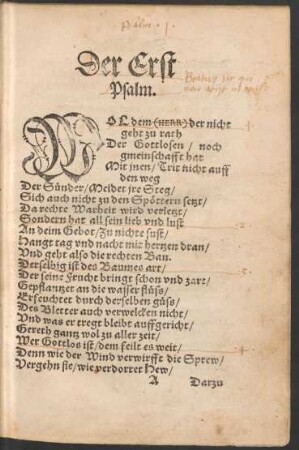 Psalm. 1.
Der Erst
Psalm.
WOL dem (HERR) der nicht
geht zu rath
Der Gottlosen / noch
gmeinschafft hat
Mit jnen / Trit nicht auff
den weg
Der Sünder / Meidet jre Steg /
Sich auch nicht zu den Spöttern setzt /
Da rechte Warheit wird verletzt /
Sondern hat all sein lieb vnd lust
An deim Gebot / Zu nichte sust /
Hangt tag vnd nacht mit hertzen dran /
Vnd geht also die rechten Ban.
Derselbig ist des Baumes art /
Der seine Frucht bringt schon vnd zart /
Gepflantzet an die wasser flüss /
Erfeuchtet durch derselben güss /
Des Bletter auch verwelcken nicht /
Vnd was er tregt bleibt auffgericht /
Gereth gantz wol zu aller zeit /
Wer Gottlos ist / dem feilt es weit /
Denn wie der Wind verwirfft die Sprew /
Vergehn sie / wie verdorret Hew /
A Darzu